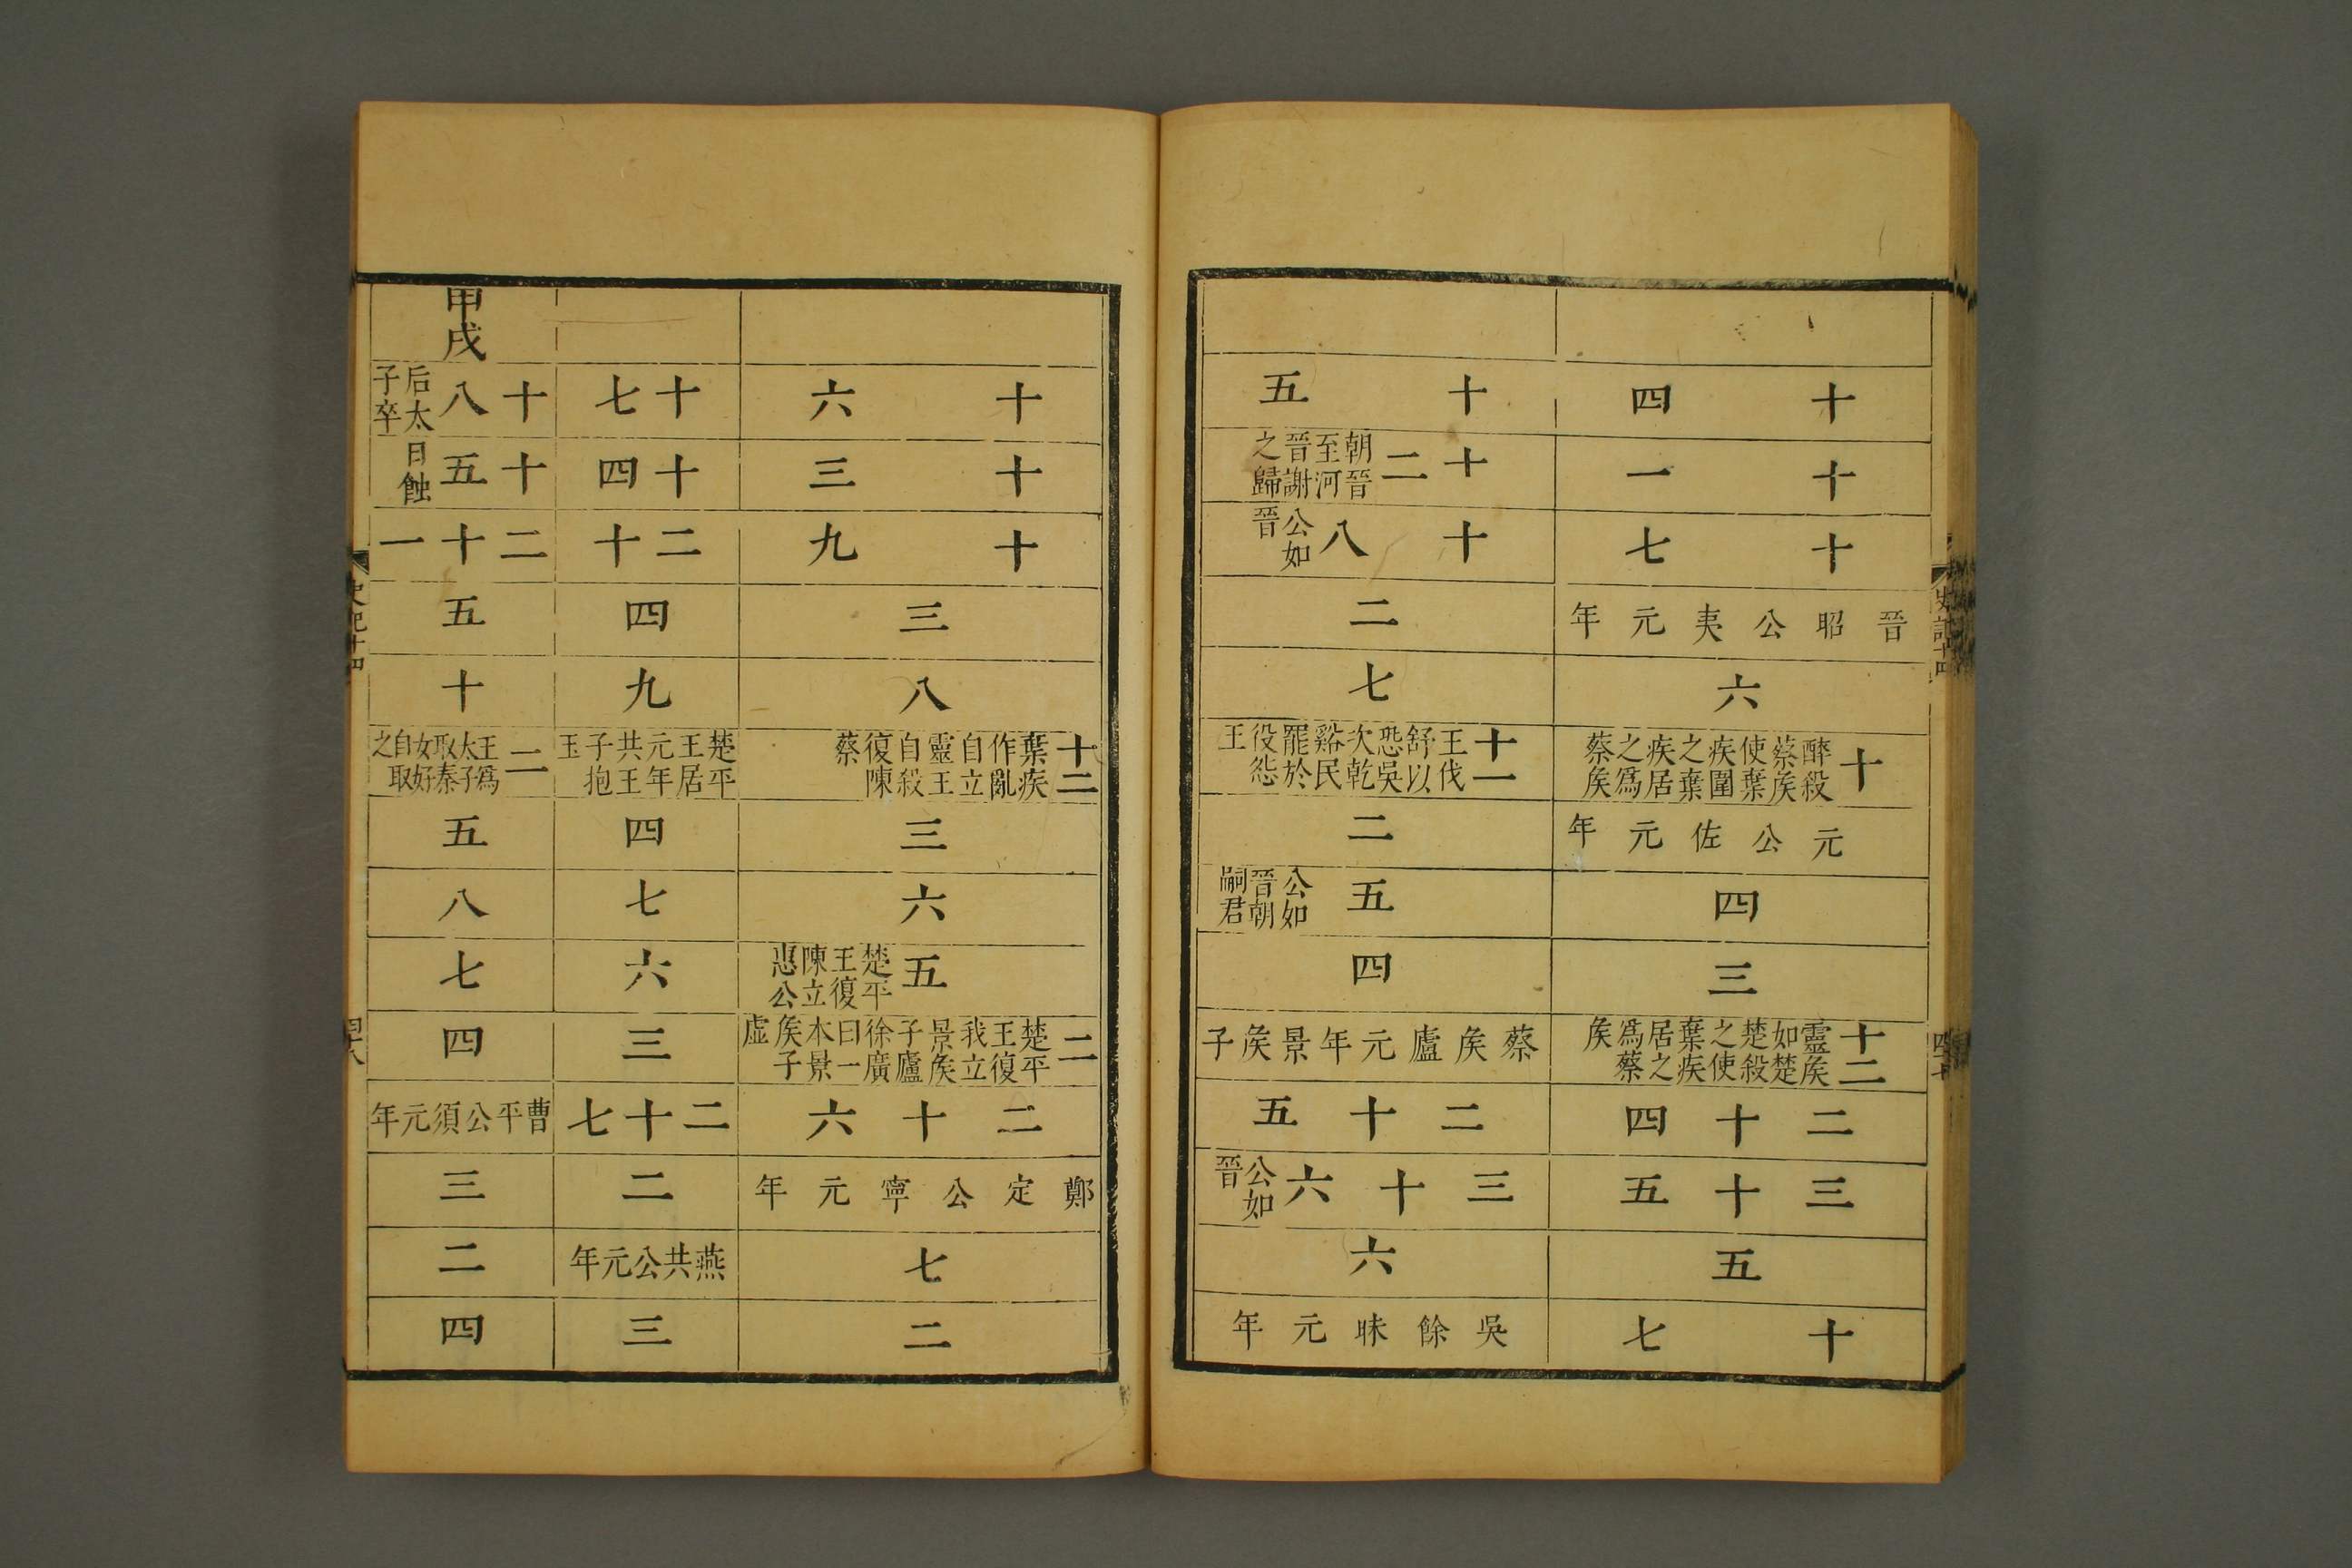 十四
十一
十七
晉昭公夷元年
六
十 醉殺蔡矦使葉疾圍之葉疾居之爲蔡矦
元公佐元年
四
三
十二 靈矦如楚楚殺之使葉疾居之爲蔡矦
二十四
三十五
五
十七
十五
十二 朝晉至河晉謝之歸
十八 公如晉
二
七
十一 王伐舒以恐吳次乾谿民罷於役怨王
二
五 公如晉朝嗣君
四
蔡矦廬元年景矦子
二十五
三十六 公如晉
六
吳餘昧元年
十六
十三
十九
三
八
十二 葉疾作亂自立靈王自殺復陳蔡
三
六
五 楚平王復陳立惠公
二 楚平王復我立景矦子廬徐廣曰一本景矦子虛
二十六
鄭定公寧元年
七
二
十七
十四
二十
四
九
楚平王居元年共王子抱玉
四
七
六
三
二十七
二
燕共公元年
三
甲戌
十八 后太子卒
十五 日蝕
二十一
五
十
二 王爲太子取秦女好自取之
五
八
七
四
曹平公須元年
三
二
四
史記十四
四十八